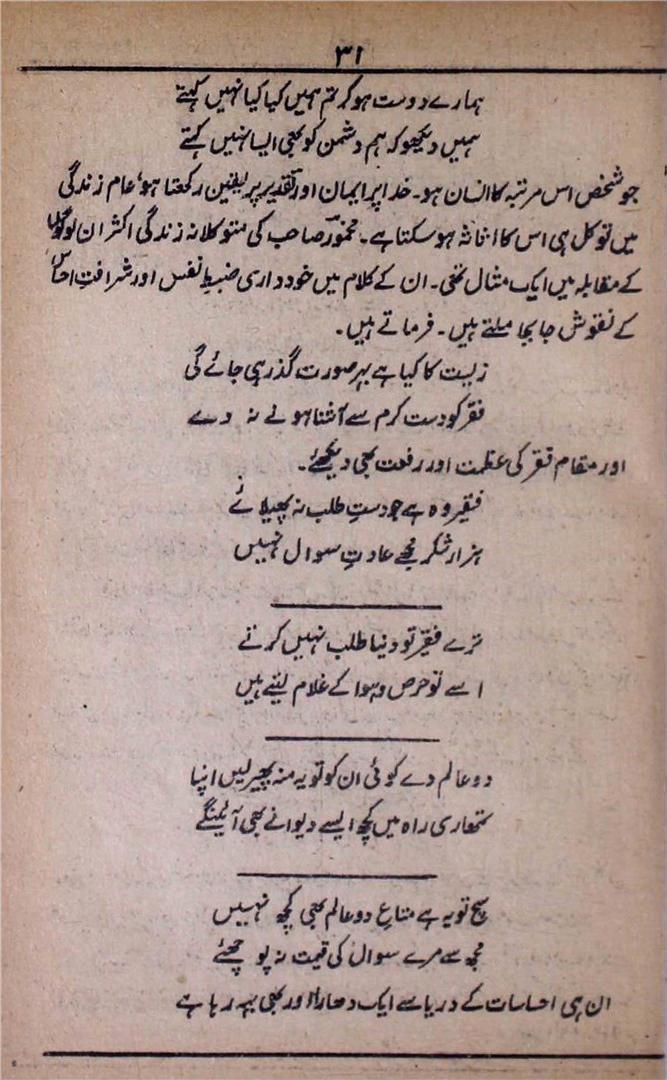 ۳۱
ہمارے دوست ہو کر تم ہمیں کیا کیا نہیں کہتے
ہمیں دیکھو کہ ہم دشمن کو بھی ایسا نہیں کہتے
جو شخص اس مرتبہ کا انسان ہو۔ خدا پر ایمان اور تقدیر پر یقین رکھتا ہو، عام زندگی
میں توکل ہی اس کا اثاثہ ہو سکتا ہے۔ مخمورؔ صاحب کی متوکلانہ زندگی اکثر ان لوگوں
کے مقابلہ میں ایک مثال تھی۔ ان کے کلام میں خودداری ضبطِ نفس اور شرافتِ احساس
کے نقوش جابجا ملتے ہیں۔ فرماتے ہیں۔
زیست کا کیا ہے بہر صورت گذر ہی جائے گی
فقر کو دست کرم سے آشنا ہونے نہ دے
اور مقام فقر کی عظمت اور رفعت بھی دیکھئے۔
فقیر وہ ہے جو دستِ طلب نہ پھیلائے
ہزار شکر مجھے عادتِ سوال نہیں
ترے فقیر تو دنیا طلب نہیں کرتے
اسے تو حرص و ہوا کے غلام لیتے ہیں
دو عالم دے کوئی ان کو تو یہ منہ پھیر لیں اپنا
تمھاری راہ میں کچھ ایسے دیوانے بھی آئینگے
سچ تو یہ ہے متاعِ دو عالم بھی کچھ نہیں
مجھ سے مرے سوال کی قیمت نہ پوچھئے
ان ہی احساسات کے دریا سے ایک دھارا اور بھی بہہ رہا ہے